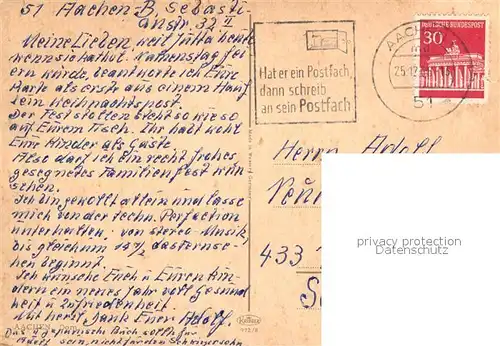 51 Aachen-B, Sebasti-
anstr. 32 II
Meine Lieben, weil Jutta heute
wenn sie hat Namenstag fei
ern würde, beantworte ich Eure
Karte als erste aus einem Hauf
lein Weihnachtspost.
Der Feststollen steht so wieso
auf Eurem Tisch. Ihr habt wohl
Eure Kinder als Gäste
Also darf ich ein recht frohes
gesegnetes Familienfest wün
schen.
Ich bin gewollt allein und lasse
mich von der techn. Perfection
unterhalten, von stereo-Musik,
bis gleich um 14 1/2 das Fernse-
hen beginnt.
Ich wünsche Euch u Euren Kin-
dern ein neues Jahr voll Gesund
heit u Zufriedenheit
Mit herzl. Dank Euer Adolf.
AACHEN
Das Buch sollte für
Adolf sein, nicht für den Schwiegersohn
Hat er ein Postfach,
dann schreib
an sein Postfach
AACHEN
25.12
51
DEUTSCHE BUNDESPOST
30
Herrn Adolf
433
privacy protection
Datenschutz